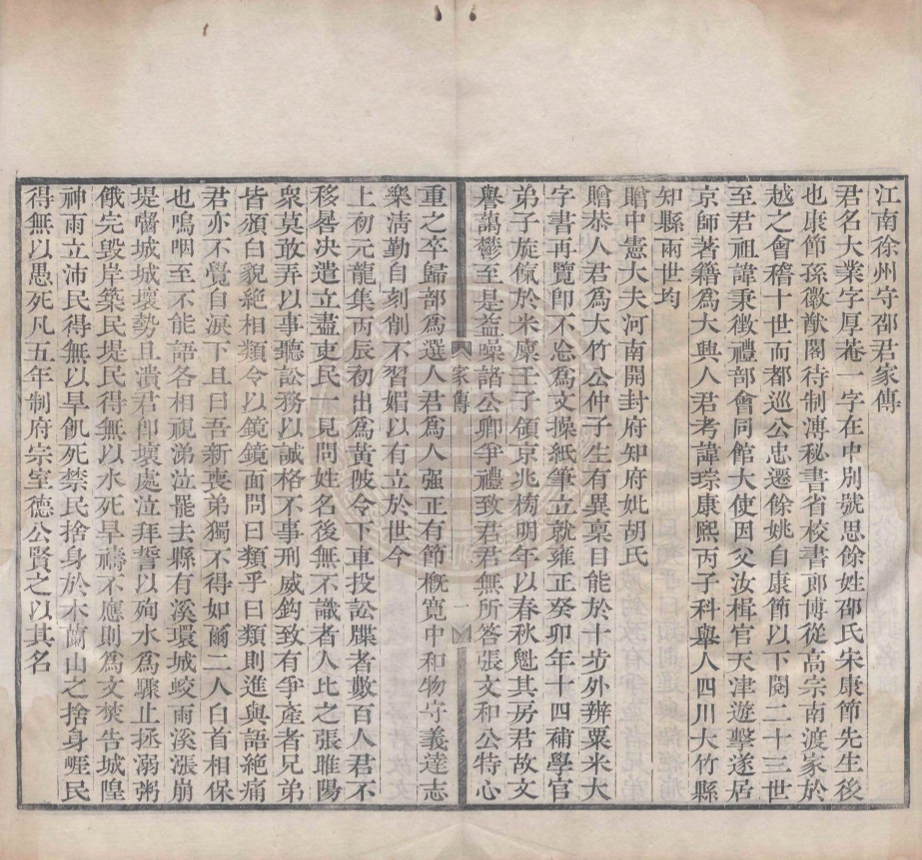 江南徐州守邵君家傳
君名大業字厚菴一字在中別號思餘姓邵氏宋康節先生後
也康節孫徽猷閣待制溥秘書省校書郎博從高宗南渡家於
越之會稽十世而都巡公忠遷餘姚自康節以下閱二十三世
至君祖諱秉徵禮部會同館大使因父汝楫官天津遊擊遂居
京師著籍為大興人君考諱琮康熙丙子科舉人四川大竹縣
知縣兩世均
贈中憲大夫河南開封府知府妣胡氏
贈恭人君為大竹公仲子生有異稟目能於十步外辨粟米大
字書再覽即不忘為文操紙筆立就雍正癸卯年十四補學官
弟子旋餼於米廩壬子領京兆榜明年以春秋魁其房君故文
譽蔼鬱至是益噪諸公卿爭禮致君君無所答張文和公特心
家傳
一
重之卒歸部為選人君為人强正有節概寬中和物守義達志
樂清勤自刻削不習媚以有立於世今
上初元龍集丙辰初出為黃陂令下車投訟牒者數百人君不
移晷决遣立盡吏民一見問姓名後無不識者人比之張睢陽
衆莫敢弄以事聽訟務以誠格不事刑威鈎致有爭產者兄弟
皆頒白貌絶相類令以鏡鏡面問曰類乎曰類則進與語絶痛
君亦不覺自淚下且曰吾新喪弟獨不得如爾二人白首相保
也嗚咽至不能語各相視涕泣罷去縣有溪環城蛟雨溪漲崩
堤嚙城城壞勢且潰君即壞處泣拜誓以殉水為驟止拯溺粥
餓完毀岸築民堤民得無以水死旱禱不應則為文焚告城隍
神雨立沛民得無以旱飢死禁民捨身於木蘭山之捨身崕民
得無以愚死凡五年制府宗室德公賢之以其名